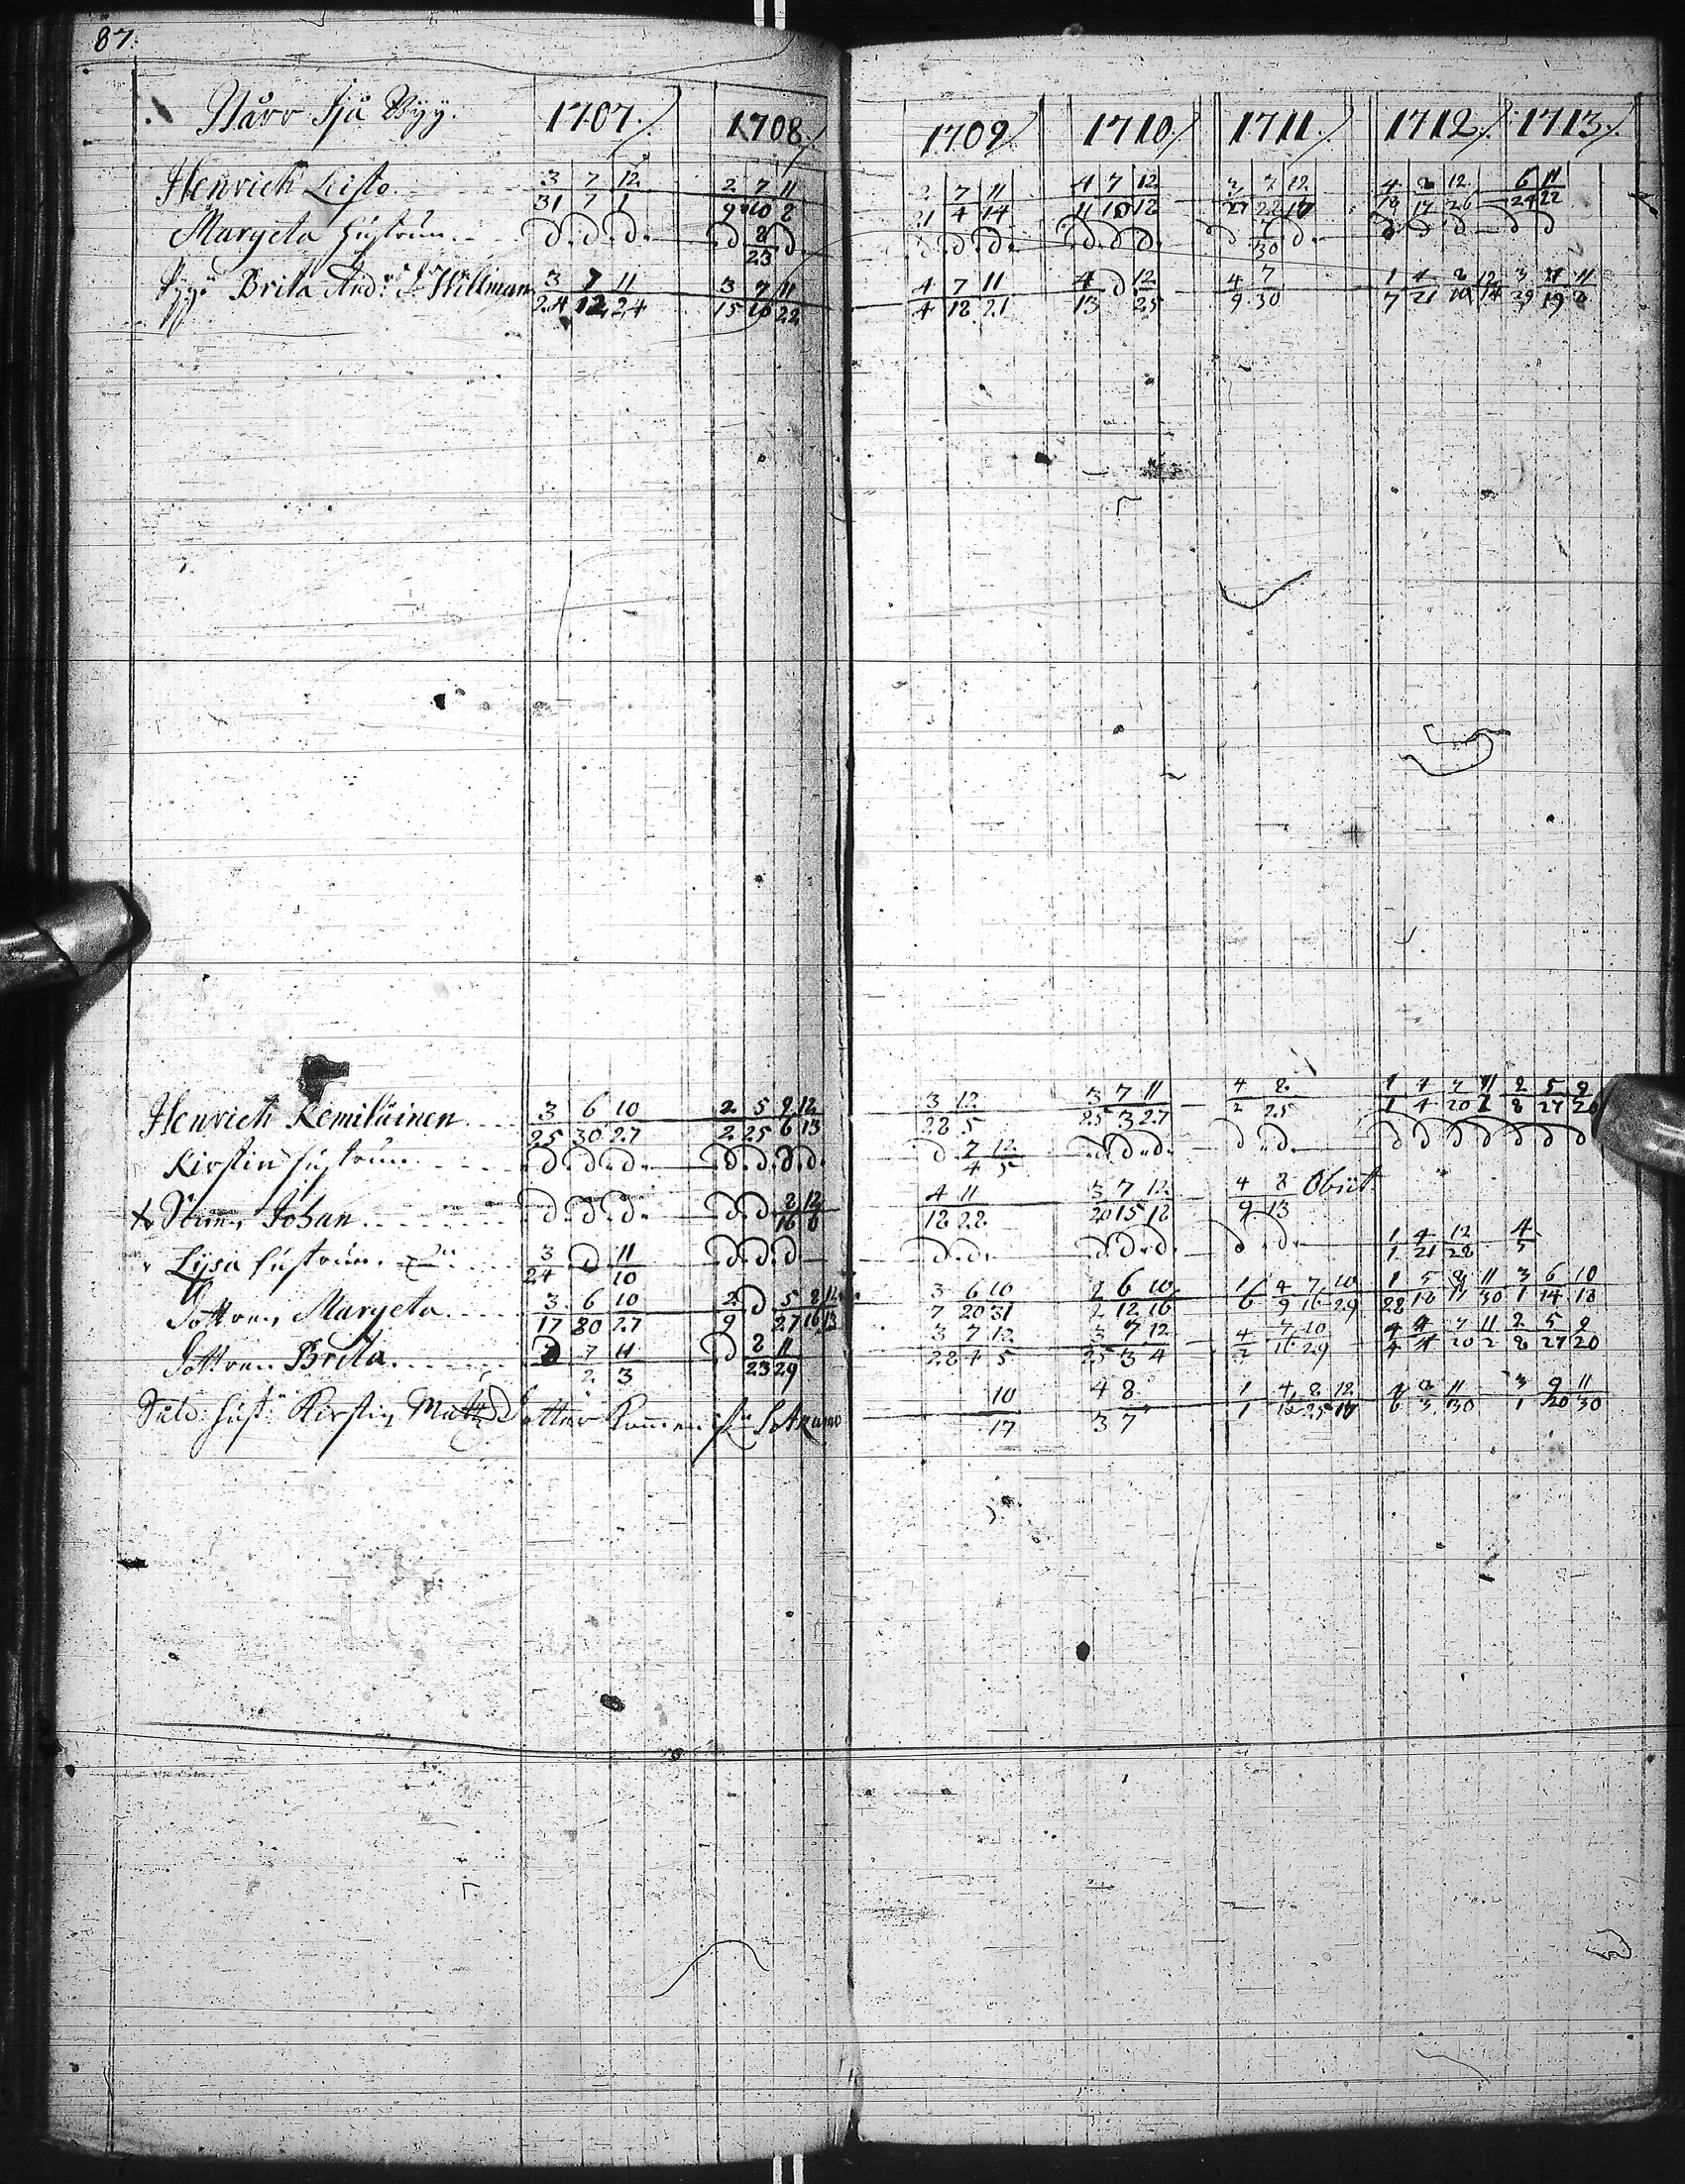 87.
Närr Sjä Byy. 1707. 1708. 1709. 1710. 1711. 1712. 1713.
Henrich Leisto. 3/31 7/7 12/1 2/9 7/10 11/8 2/21 7/4 11/14 4/11 7/10 12/18 12/26 6/24 11/22
Margeta hustrun. D. D. D. D 8/23 D D. D. D. D D D. D 7/30 D. D D D D D
Brita And: S: Willman 3/24 7/12 11/24 3/15 7/18 11/22 4/4 7/18 11/21 4/13 D 12/25 4/9 7/30 1/7 4/21 12/14 3/29 11/8
Henrich Kemiläinen. 3/25 6/30 10/27 2/2 5/25 9/6 12/13 3/28 12/5 3/25 7/3 11/27 4/2 8/25 1/1 4/4 7/20 11/2 2/8 5/27 9/20
Kirstin hustrun. D. D. D. D. D. D. D. D 7/4 12/5 D. D. D. D D. D D D D D D D
Sonen Johan. D. D. D. D. D. 8/16 12/6 4/18 11/22 3/20 7/15 12/18 4/9 8/13 Obiit.
Lysa hustrun. 3/24 D 11/10 D. D. D D. D. D. D. D. D D. 1/1 4/21 12/28
Dottren Margeta. 3/17 6/30 10/27 2/9 D 5/27 8/16 12/13 3/7 6/20 10/31 2/2 6/12 10/16 1/6 4/9 7/16 10/29 1/28 5/18 8/17 11/30 3/1 6/14 10/18
Dottren Brita. 7/2 11/3 D 8/23 11/29 3/28 7/4 12/5 3/25 7/3 12/4 4/2 7/16 10/29 4/4 7/20 11/2 2/8 5/27 9/20
hust: Kirstin Matts Dotter 10/17 4/3 8/7 1/1 4/12 8/25 12/17 11/30 3/1 9/20 11/30